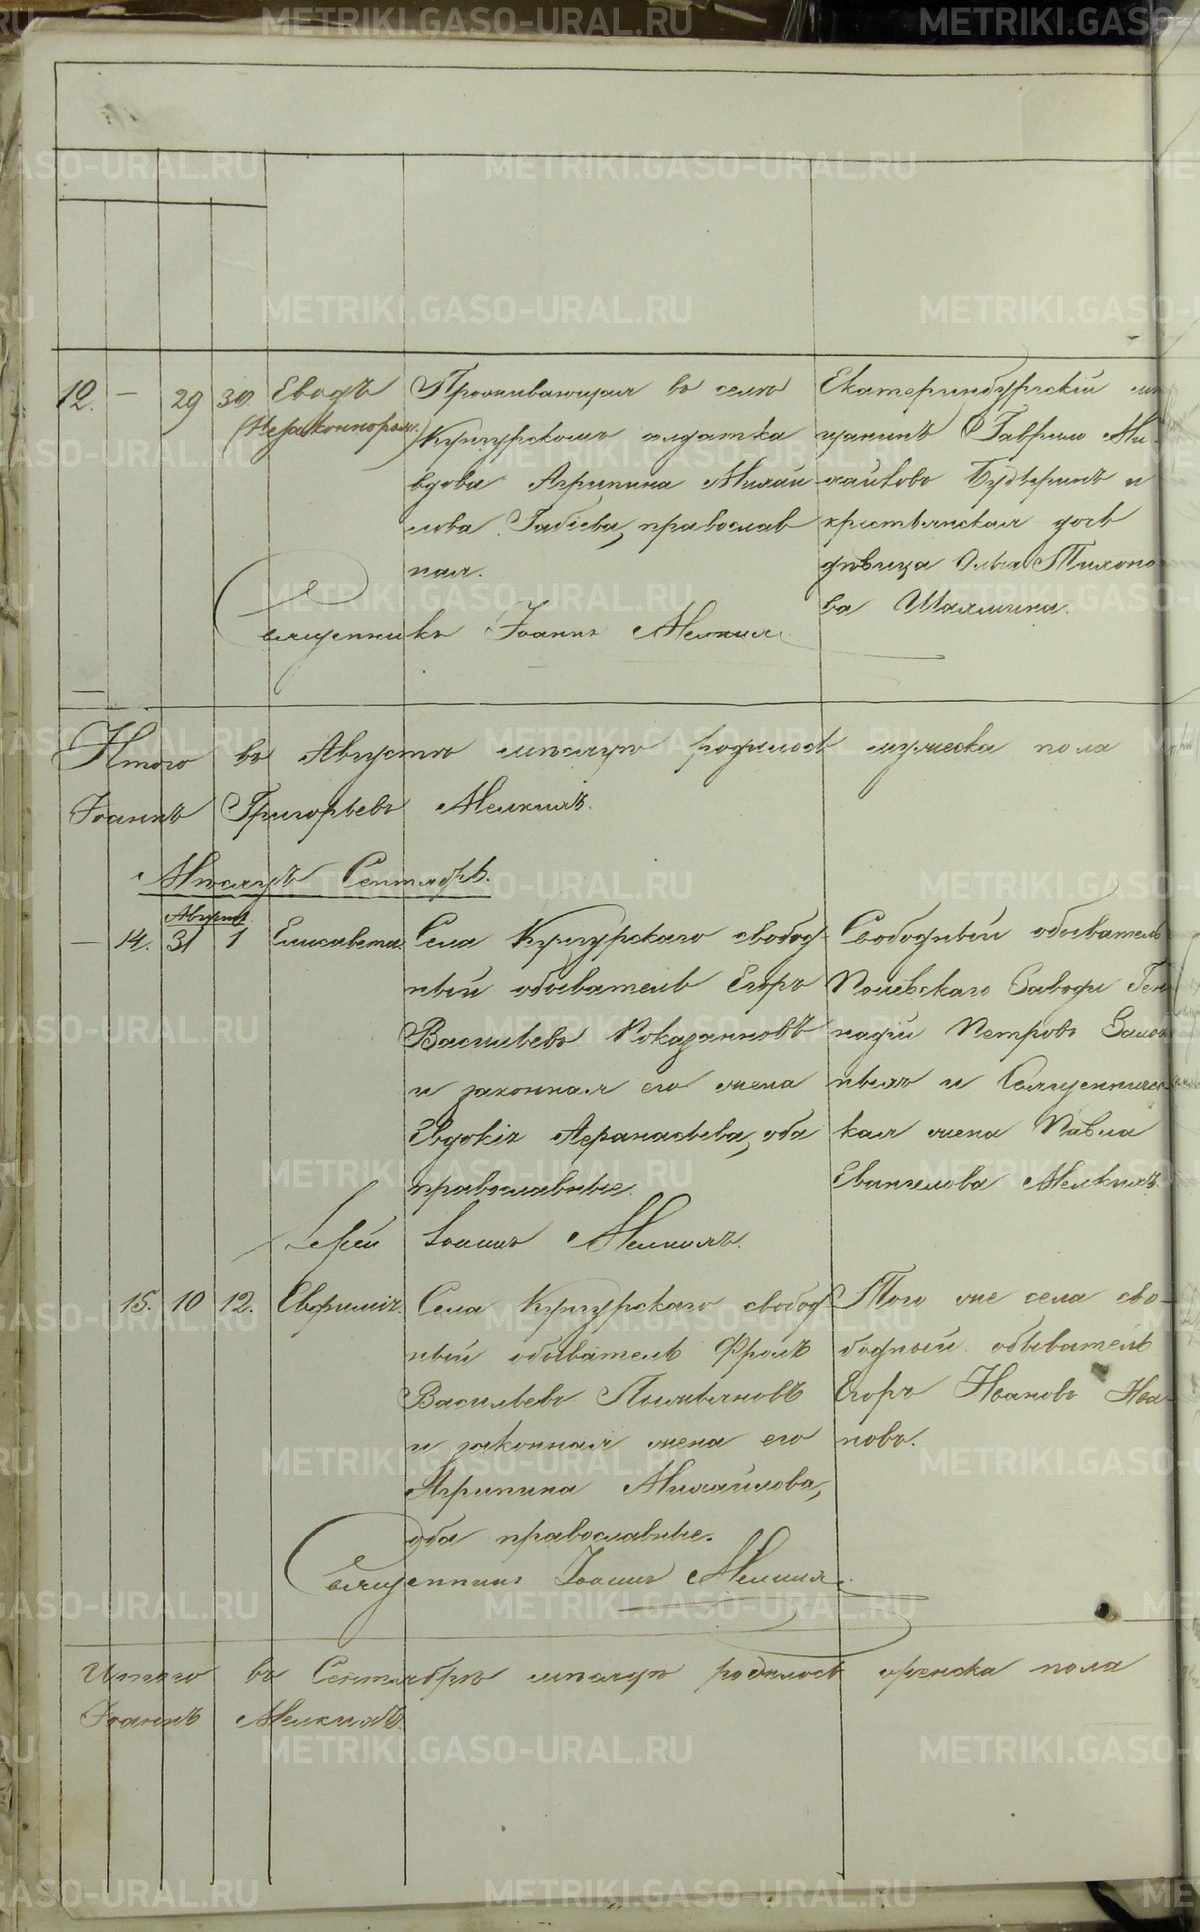 12. — 29 30. Еводъ
(Незаконнорож.)
Проживающая въ селѣ
Кунгурскомъ солдатка
вдова Агрипина Михай
лова Габіева, православ
ная.
Екатеринбургскій мѣ
щанинъ Гаврило Ми-
хайловъ и
крестьянская дочь
дѣвица Ольга Тихоно
ва Шахмина.
Священникъ Іоаннъ Мелкихъ.
Итого въ Августѣ мѣсяцѣ родилось мужеска пола
Іоаннъ Григорьевъ Мелкихъ.
Мѣсяцъ Сентябрь.
Август.
— 14. 31 1 Елисавета
Села Кунгурскаго свобод
ный обыватель Егоръ
Васильевъ
и законная его жена
Евдокія Афанасьева, оба
православные.
Свободный обыватель
Полевскаго Завода Ген
надій Петровъ
и Священничес
кая жена Павла
Евангелова Мелкихъ.
Іерей Іоаннъ Мелкихъ.
15. 10 12. Евфимія
Села Кунгурскаго свобод
ный обыватель Фролъ
Васильевъ
и законная жена его
Агрипина Михайлова,
оба православные.
Того же села сво-
бодный обыватель
Егоръ Ивановъ Ива-
новъ.
Священникъ Іоаннъ Мелкихъ.
Итого въ Сентябрѣ мѣсяцѣ родилось женска пола
Іоаннъ Мелкихъ.
METRIKI.GASO-URAL.RU